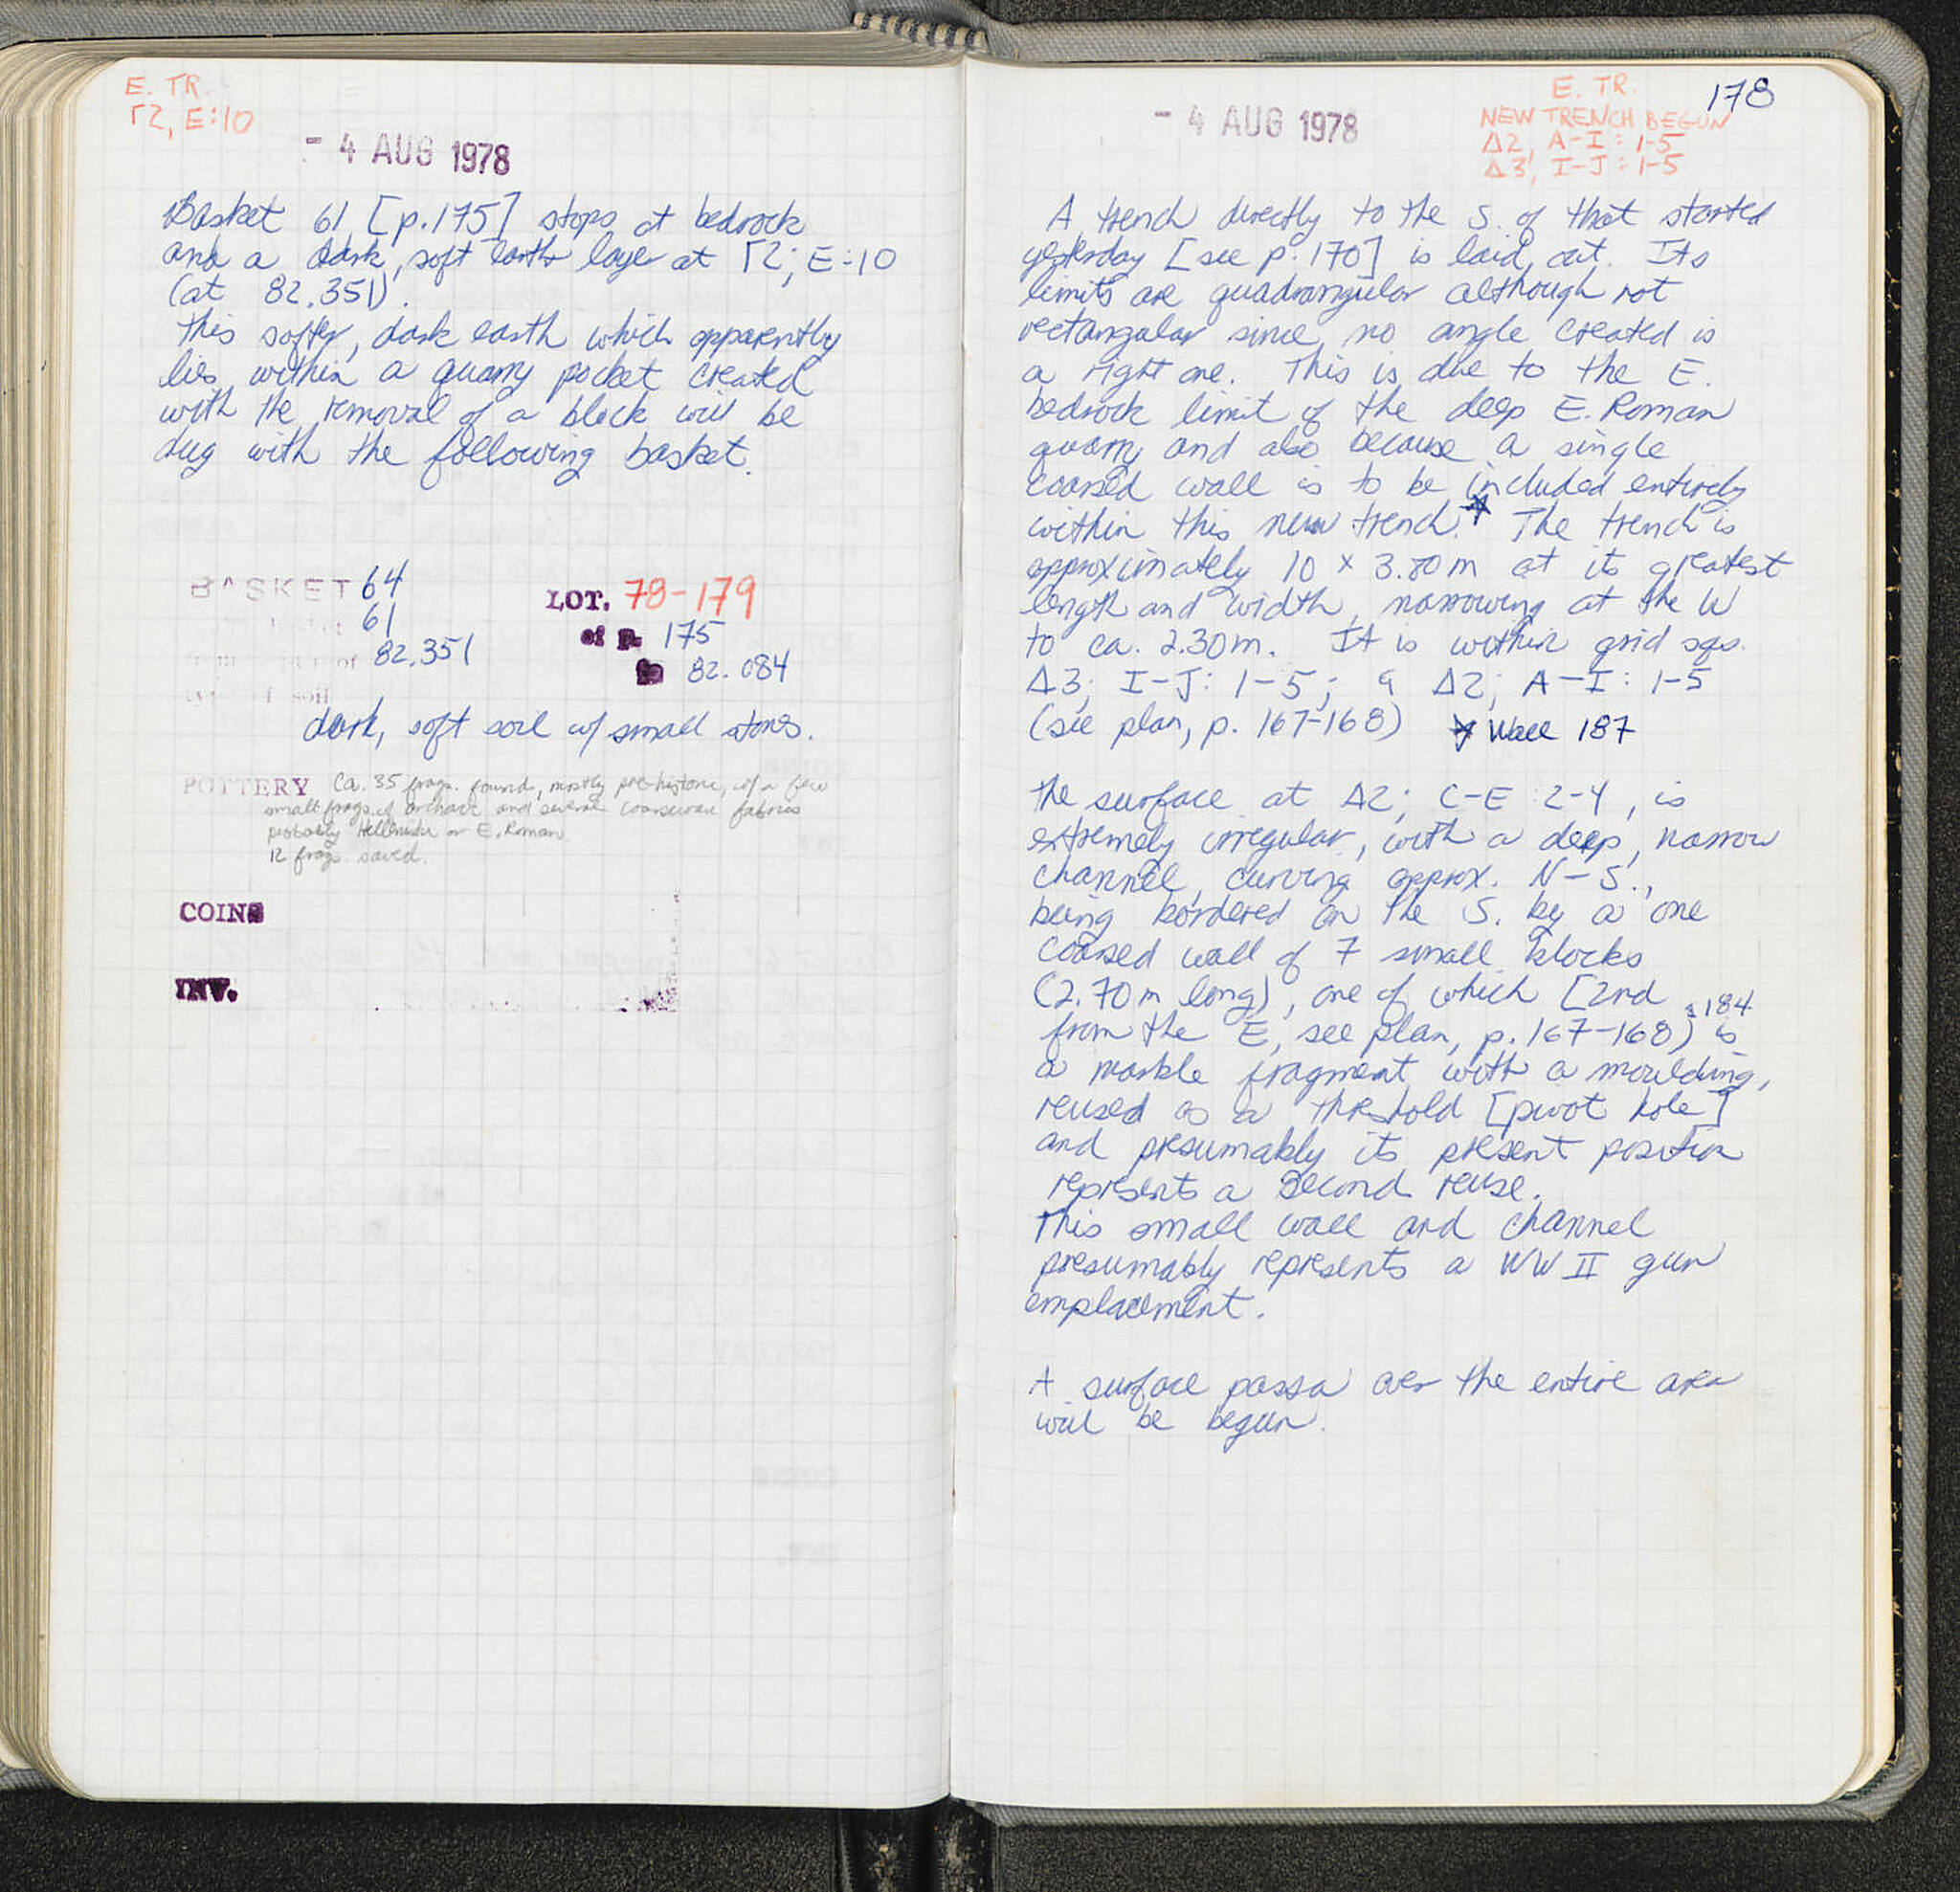 E. TR.
Γ2, E:10
- 4 AUG 1978
Basket 61 [p.175] stops at bedrock
and a dark, soft earth layer at Γ2; E:10
(at 82.351).
This softer, dark earth which apparently
lies within a quarry pocket created
with the removal of a block will be
dug with the following basket.
BASKET 64 LOT. 78-179
61 of p. 175
of 82.351 to 82.084
soil
dark, soft soil w/ small stones.
POTTERY Ca. 35 frags. found, mostly pre-historic, w/ a few
small frags. of archaic and several coarseware fabrics
probably Hellenistic or E. Roman.
12 frags saved.
COINS
INV.
178
E. TR.
- 4 AUG 1978
NEW TRENCH BEGUN
Δ2, A-I: 1-5
Δ3, I-J: 1-5
A trench directly to the S. of that started
yesterday [see p. 170] is laid out. Its
limits are quadrangular although not
rectangular since no angle created is
a right one. This is due to the E.
bedrock limit of the deep E. Roman
quarry and also because a single
coarsed wall is to be included entirely
within this new trench.* The trench is
approximately 10 x 3.80 m at its greatest
length and width, narrowing at the W
to ca. 2.30 m. It is within grid sqs.
Δ3; I-J: 1-5; & Δ2; A-I: 1-5
(see plan, p. 167-168) * Wall 187
The surface at Δ2; C-E: 2-4, is
extremely irregular, with a deep, narrow
channel, curving approx. N-S.,
being bordered on the S. by a one
coarsed wall of 7 small blocks
(2.70 m long), one of which [2nd
from the E, see plan, p. 167-168 & 184) is
a marble fragment with a moulding,
reused as a threshold [pivot hole]
and presumably its present position
represents a second reuse.
This small wall and channel
presumably represents a WW II gun
emplacement.
A surface passa over the entire area
will be begun.